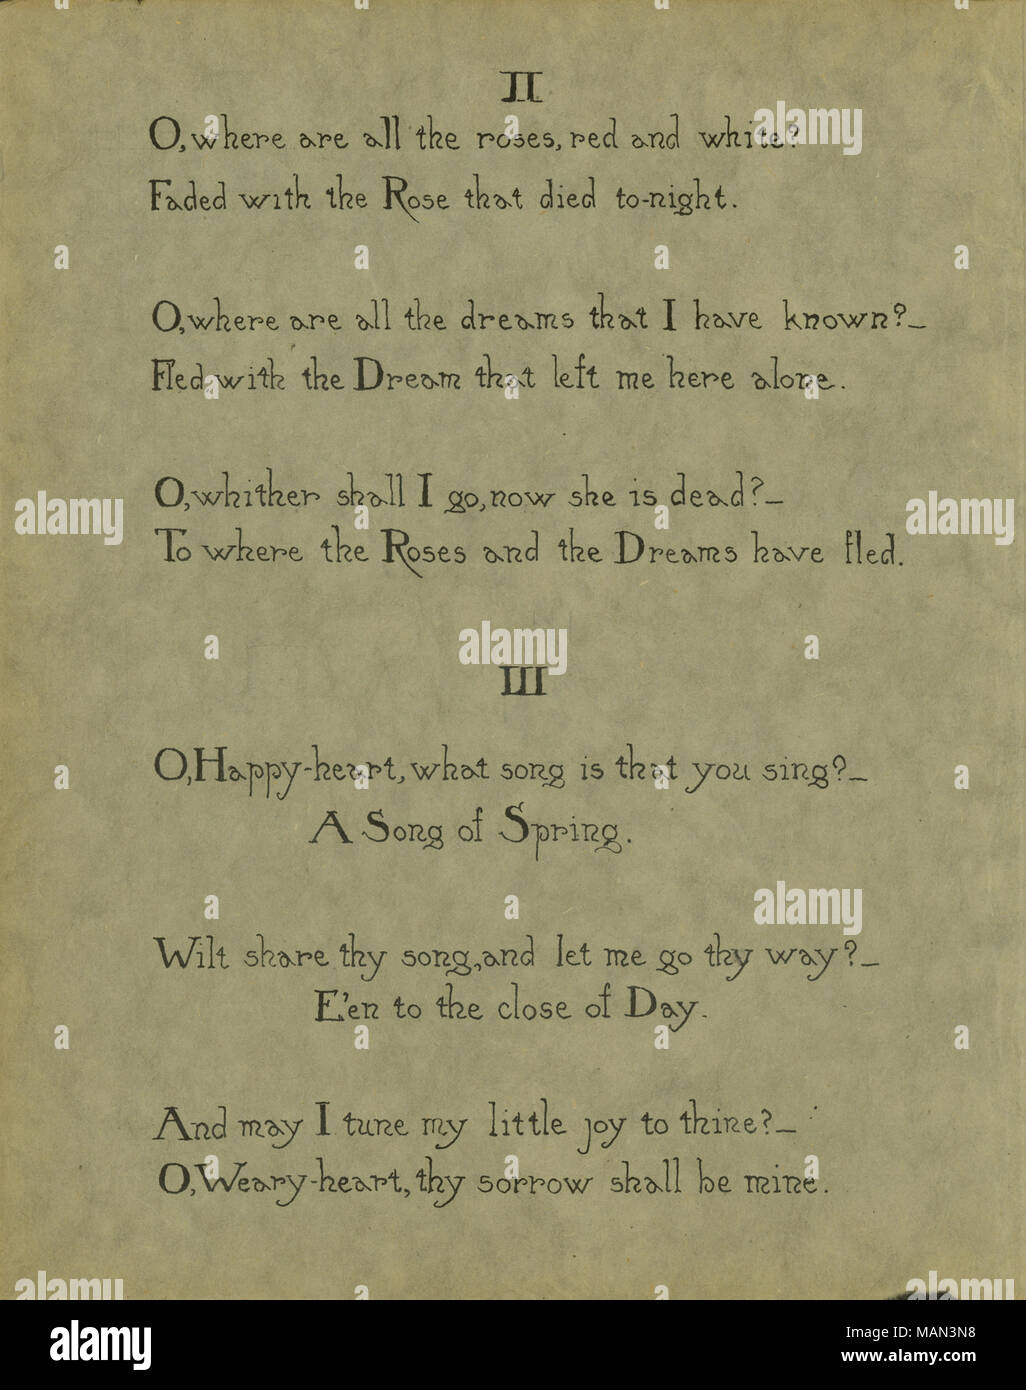 II
O, where are all the roses, red and white?
Faded with the Rose that died to-night.
O, where are all the dreams that I have known?—
Fled, with the Dream that left me here alone.
O, whither shall I go, now she is dead?—
To where the Roses and the Dreams have fled.
III
O, Happy-heart, what song is that you sing?—
A Song of Spring.
Wilt share thy song, and let me go thy way?—
E'en to the close of Day.
And may I tune my little joy to thine?—
O, Weary-heart, thy sorrow shall be mine.
alamy
Image ID: MAN3N8
www.alamy.com